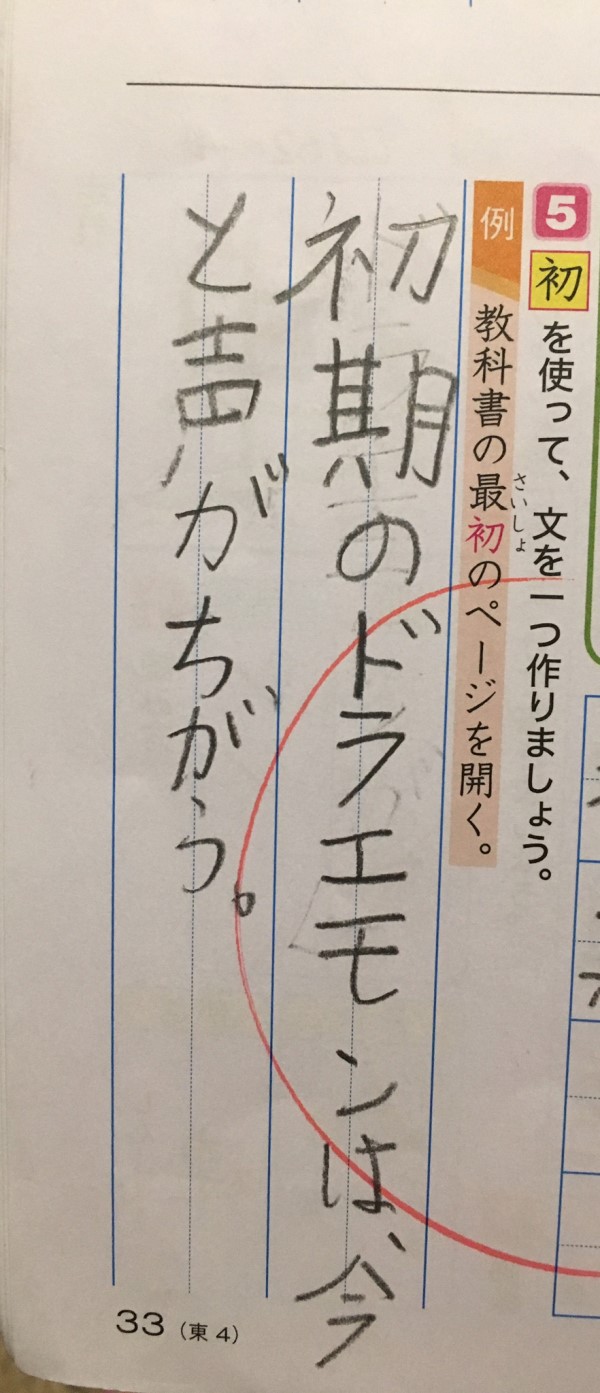 5 初を使って、文を一つ作りましょう。
例 教科書の最初のページを開く。
さいしょ
初期のドラエモンは、今
と声がちがう。
33（東4）